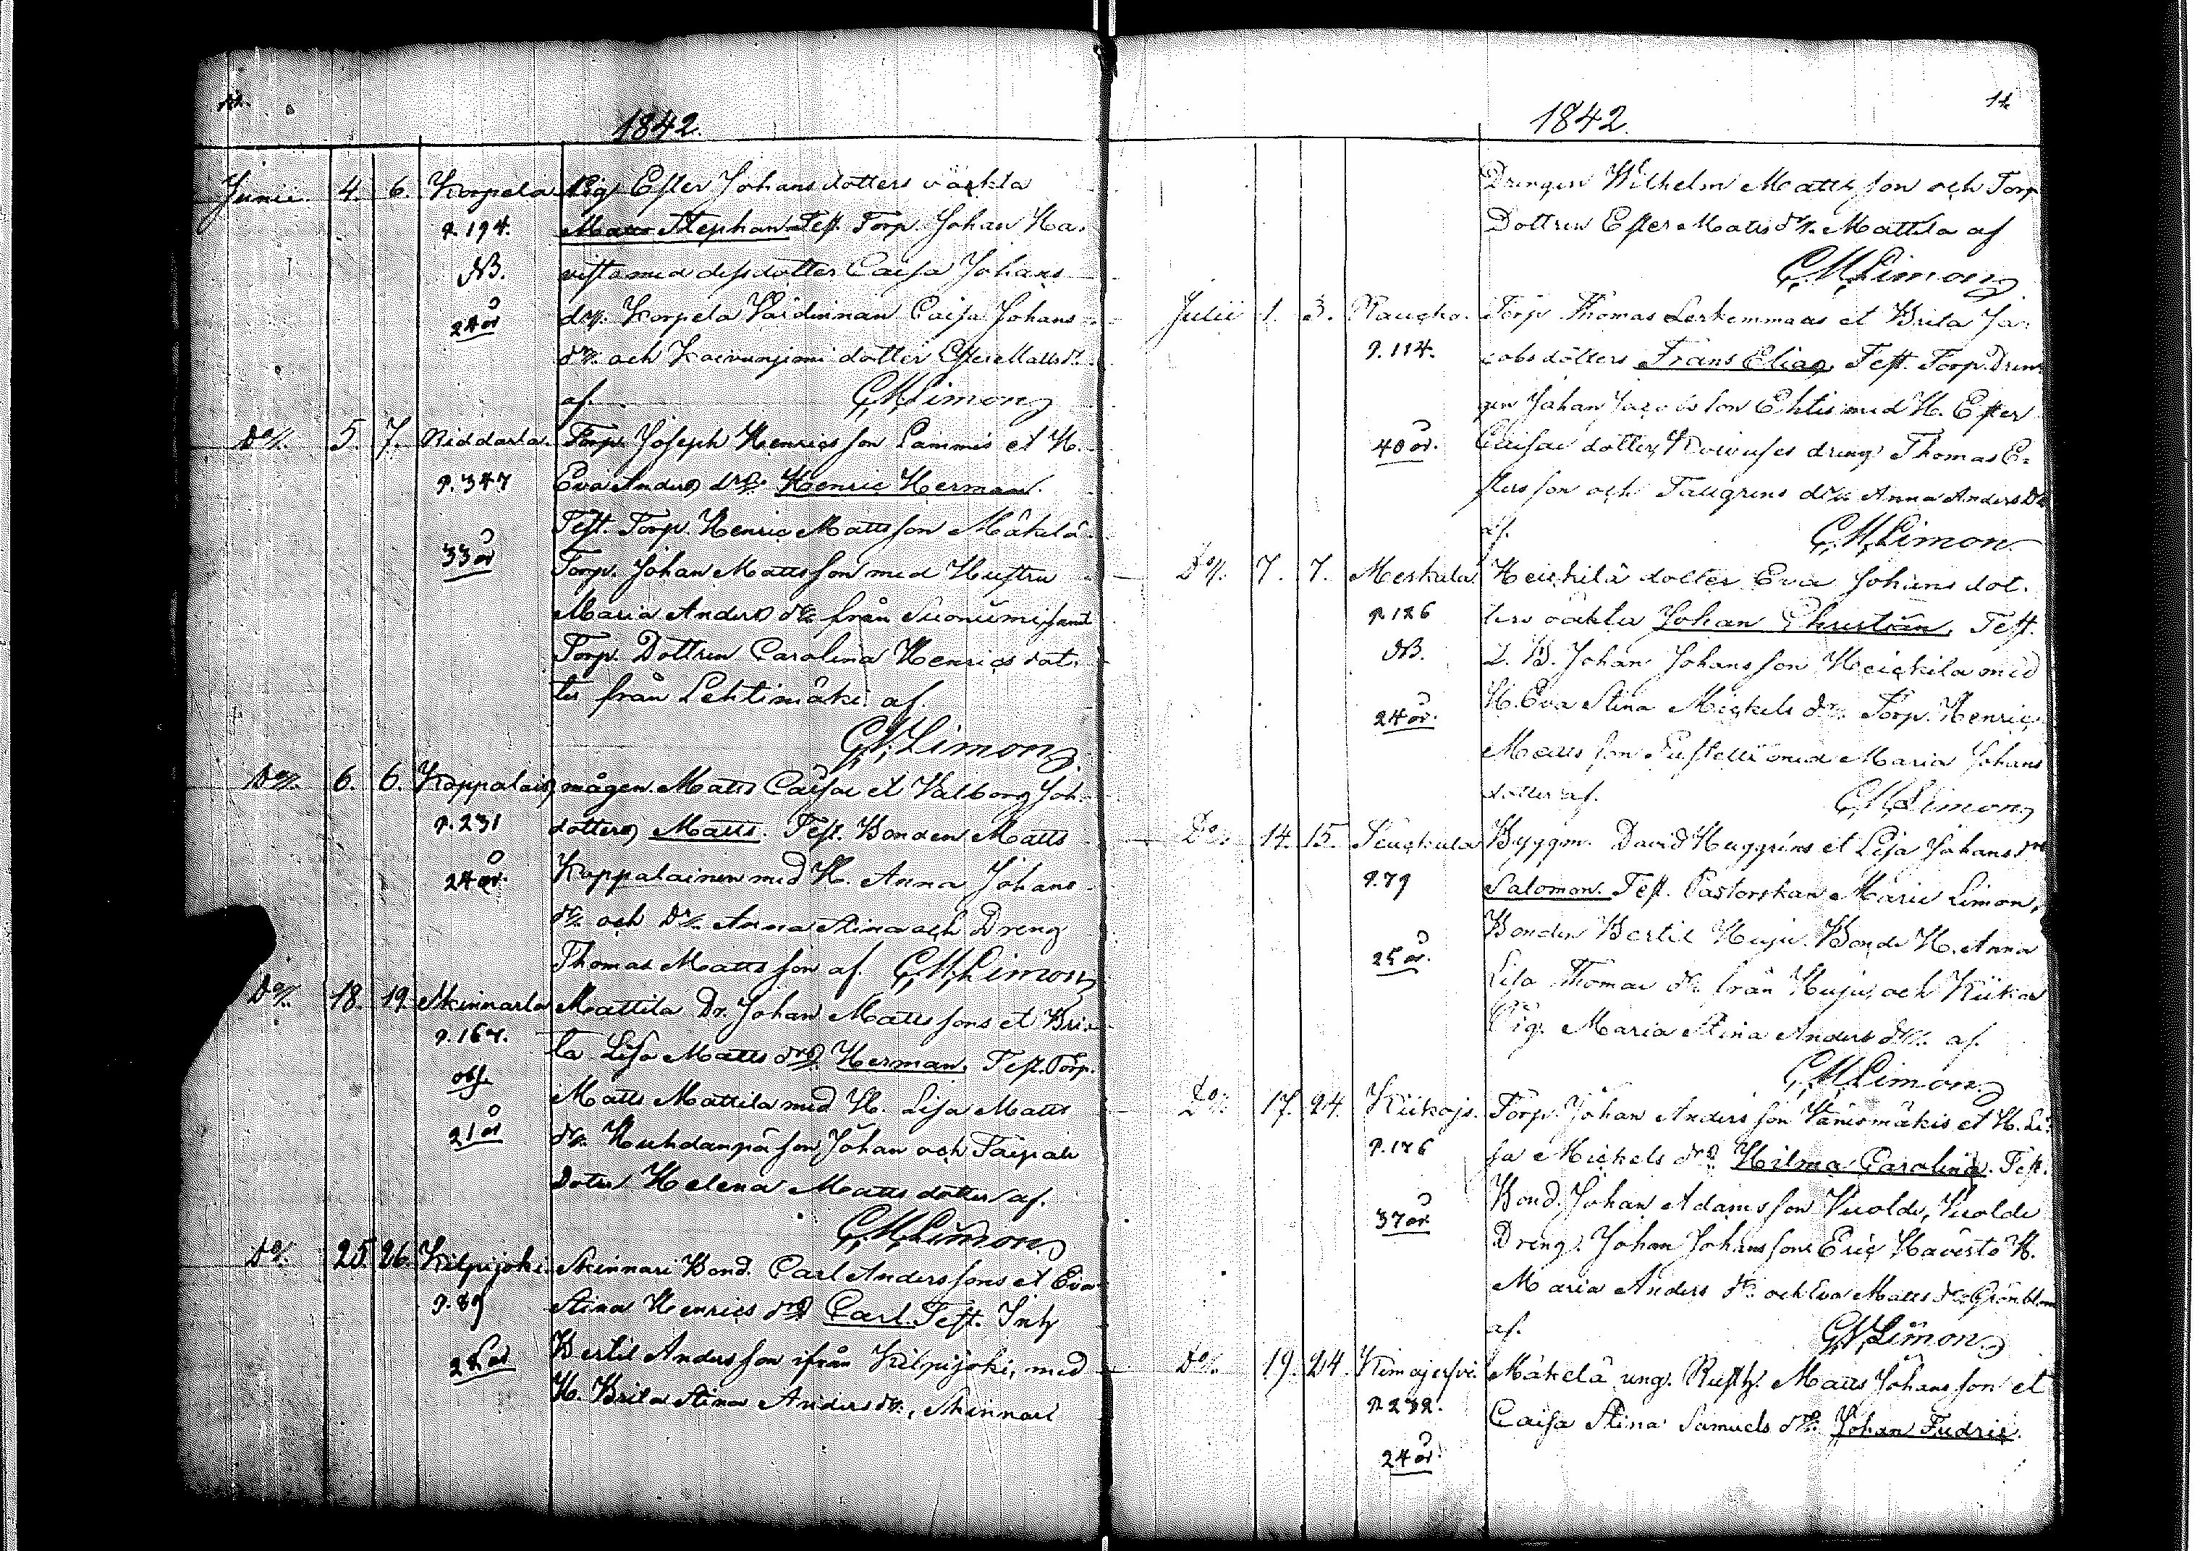 1842.
Junii 4. 6. Korpela Pig. Ester Johansdotters oäckta
p. 194. Stephan. Test. Torp. Johan Ha-
NB. visto med dess dotter Caisa Johans
24 år dr. Korpela Värdinnan Caisa Johans
dr. och dotter Ester Matts dr.
af. G. M. Limon
Do/. 5. 7. Riddarla. Torp. Joseph Henrics son Lammis et H.
p. 347 Eva Anders drs. Henric Herman.
Test. Torp. Henric Matts son Mäkelä
33 år Torp. Johan Matts son med Hustru
Maria Anders dr. från Suoniemi, samt
Torp. Dottren Carolina Henrics dot-
ter från Lehtimäki af.
G. M. Limon
Do/. 6. 6. Koppalais, mågen Matts Caisae et Valborg Joh.
p. 231 dotters, Matts. Test. Bonden Matts
24 år. Koppalainen med H. Anna Johans
dr. och dr. Anna Stina och Dreng
Thomas Matts son af. G. M. Limon
Do/. 18. 19. Skinnarla Mattila Dr. Johan Matts sons et Bri-
p. 167. ta Lisa Matts drs. Herman. Test. Torp.
obs. Matts Mattila med H. Lisa Matts
21 år dr. Huhdanpä son Johan och Taipale
Doter Helena Matts dotter af.
G. M. Limon
Do/. 25. 26. Kilpijoki Skinnari Bond. Carl Anders sons et Eva
p. 89 Stina Henrics drs. Carl. Test. Inh.
Bertil Anders son ifrån Kilpijoki, med
H. Brita Stina Anders dr., Skinnari
1842.
Drengen Wilhelm Matts son och Torp
Dottren Ester Matts dr. Mattila af
G. M. Limon
Julii 1. 3. Raucko. Torp. Thomas Lerkemmaas et Brita Ja-
p. 114. cobs dotters Frans Elias, Test. Torp. Dren-
gen Johan Jacobs son Ehtis med H. Ester
40 år. Caisae dotter, dreng Thomas E-
sters son och Taugrens dr. Anna Anders dr.
af. G. M. Limon
Do/. 7. 7. Meskala Heickilä dotter Eva Johans dot-
p. 126 ters oäkta Johan Christian, Test.
NB. Johan Johans son Heickilä med
24 år. H. Eva Stina Mickels dr. Torp. Henric
Matts son med Maria Johans
dotter af. G. M. Limon
Do/. 14. 15. Byggm. David Huggrins et Lisa Johans drs.
p. 79 Salomon. Test. Pastorskan Marie Limon,
Bonden Bertil Huju. Bonde H. Anna
25 år. Lisa Thomae dr. från Huju, och
Pig. Maria Stina Anders dr. af.
G. M. Limon
Do/. 17. 24. Kiikojs. Torp. Johan Anders son Vänismäkis et H. Li-
p. 176 sa Mickels drs. Hilma Carolina. Test.
Bond. Johan Adams son Vuolde, Vuolde
37 år Dreng. Johan Johans son, Eric Haviste H.
Maria Anders dr. och Eva Matts dr. Grönblom
af. G. M. Limon
Do/. 19. 24. Kimajerfvi. Mäkelä ung. Rusth. Matts Johans son et
p. 232. Caisa Stina Samuels drs. Johan Fredric.
24 år.